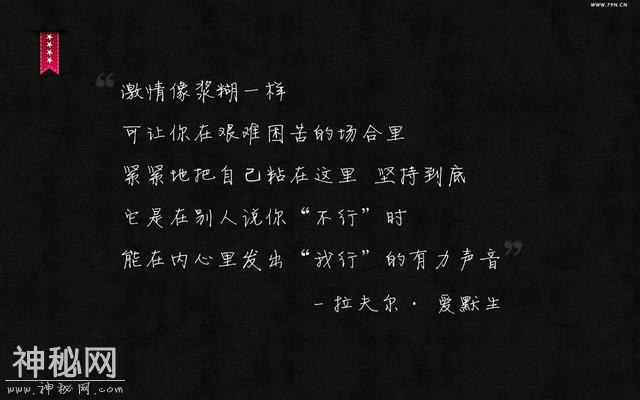 www.79N.CN
“激情像浆糊一样
可让你在艰难困苦的场合里
紧紧地把自己粘在这里 坚持到底
它是在别人说你“不行”时
能在内心里发出“我行”的有力声音”
-拉夫尔·爱默生
神秘网
www.神秘网.COM